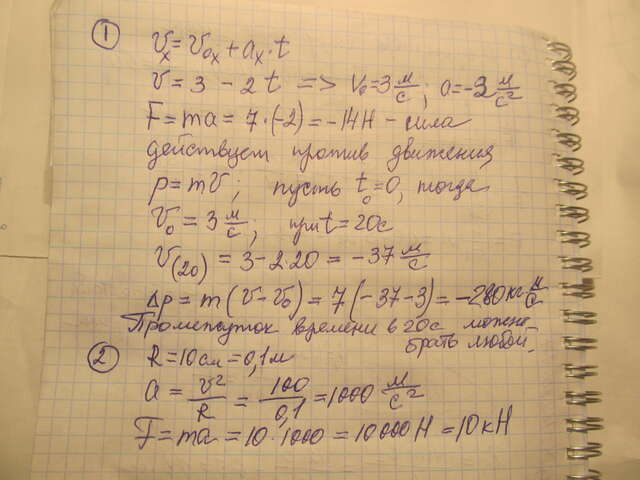 ① Vx = V0x + ax · t
V = 3 - 2t => V0 = 3 м/с; a = -2 м/с²
F = ma = 7·(-2) = -14Н - сила
действует против движения
p = mV; пусть t0 = 0, тогда
V0 = 3 м/с; при t = 20с
V(20) = 3 - 2·20 = -37 м/с
Δp = m(V - V0) = 7(-37-3) = -280 кг м/с
Промежуток времени в 20с можно
брать любой.
② R = 10см = 0,1м
a = V²/R = 100/0,1 = 1000 м/с²
F = ma = 10·1000 = 10000Н = 10кН